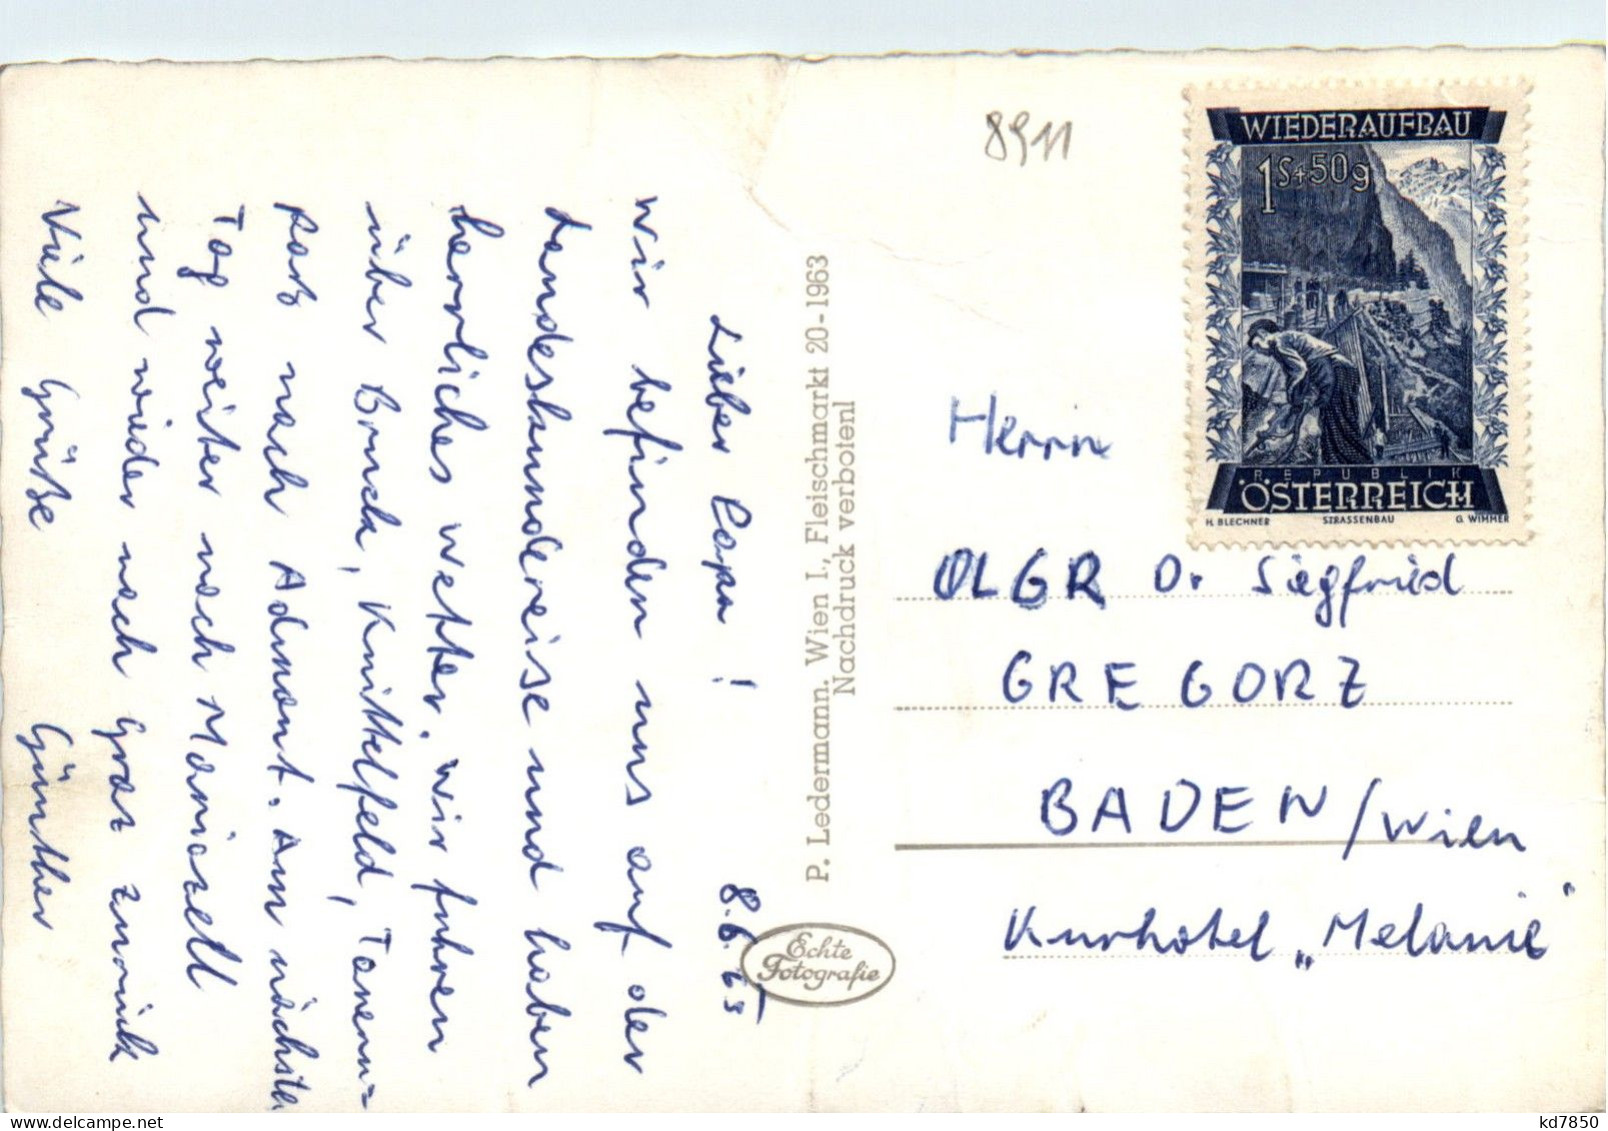 8911
WIEDERAUFBAU
1S+50g
REPUBLIK
ÖSTERREICH
H. BLECHNER STRASSENBAU G. WIMMER
Lieber Papa! 8.6.65
Wir befinden uns auf der
Landeskundereise und haben
herrliches Wetter. Wir fuhren
über Bruck, Knittelfeld, Tauern=
pass nach Admont. Am nächsten
Tag weiter nach Mariazell
und wieder nach Graz zurück
Viele Grüße Günther
P. Ledermann. Wien I., Fleischmarkt 20-1963
Nachdruck verboten!
Echte
Fotografie
Herrn
OLGR Dr Siegfried
GREGORZ
BADEN/Wien
Kurhotel „Melanie"
kd7850